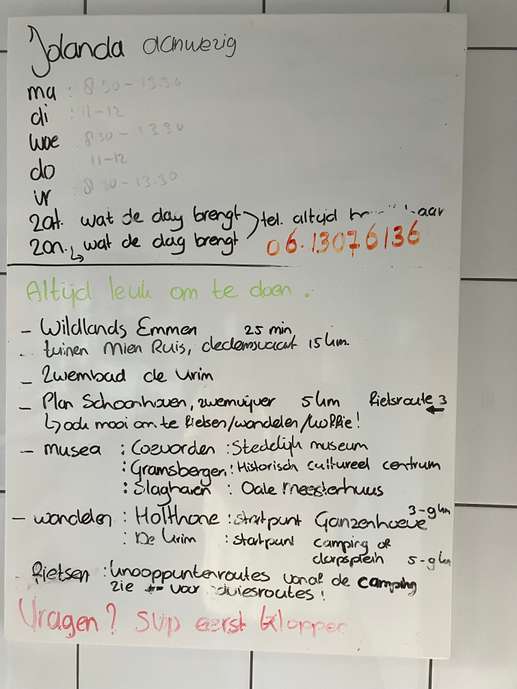 Jolanda aanwezig
ma : 8:30 - 13.30
di : 11-12
woe 8:30 - 13.30
do 11-12
vr 8:30 - 13.30
zat. wat de day brengt
zon. ↳ wat de dag brengt
tel. altijd
06.13076136
Altijd leuk om te doen.
- Wildlands Emmen 25 min
- tuinen Mien Ruis, dedemsvaart 15 km.
- Zwembad de Krim
- Plan Schoonhoven, zwemvijver 5 km Fietsroute 3 ←
↳ ook mooi om te fietsen/wandelen/koffie!
- musea : Coevorden : Stedelijk museum
: Gramsbergen : Historisch cultureel centrum
: Slagharen : Oale meesterhuus
- wandelen : Holthone : startpunt Ganzenhoeve 3-9 km
: De Krim : startpunt camping of dorpsplein 5-9 km
Fietsen : knooppuntenroutes vanaf de camping
zie voor routes!
Vragen? SVP eerst kloppen